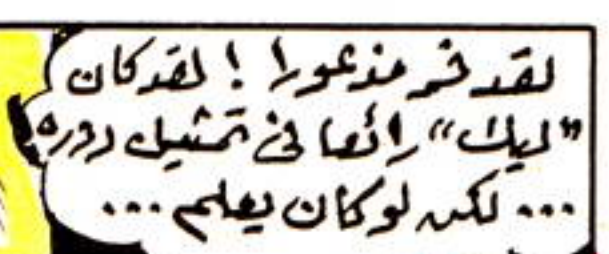 لقد فر مذعورا ! لقد كان
"ليك" رائعا في تمثيل دوره
... لكن لو كان يعلم ...